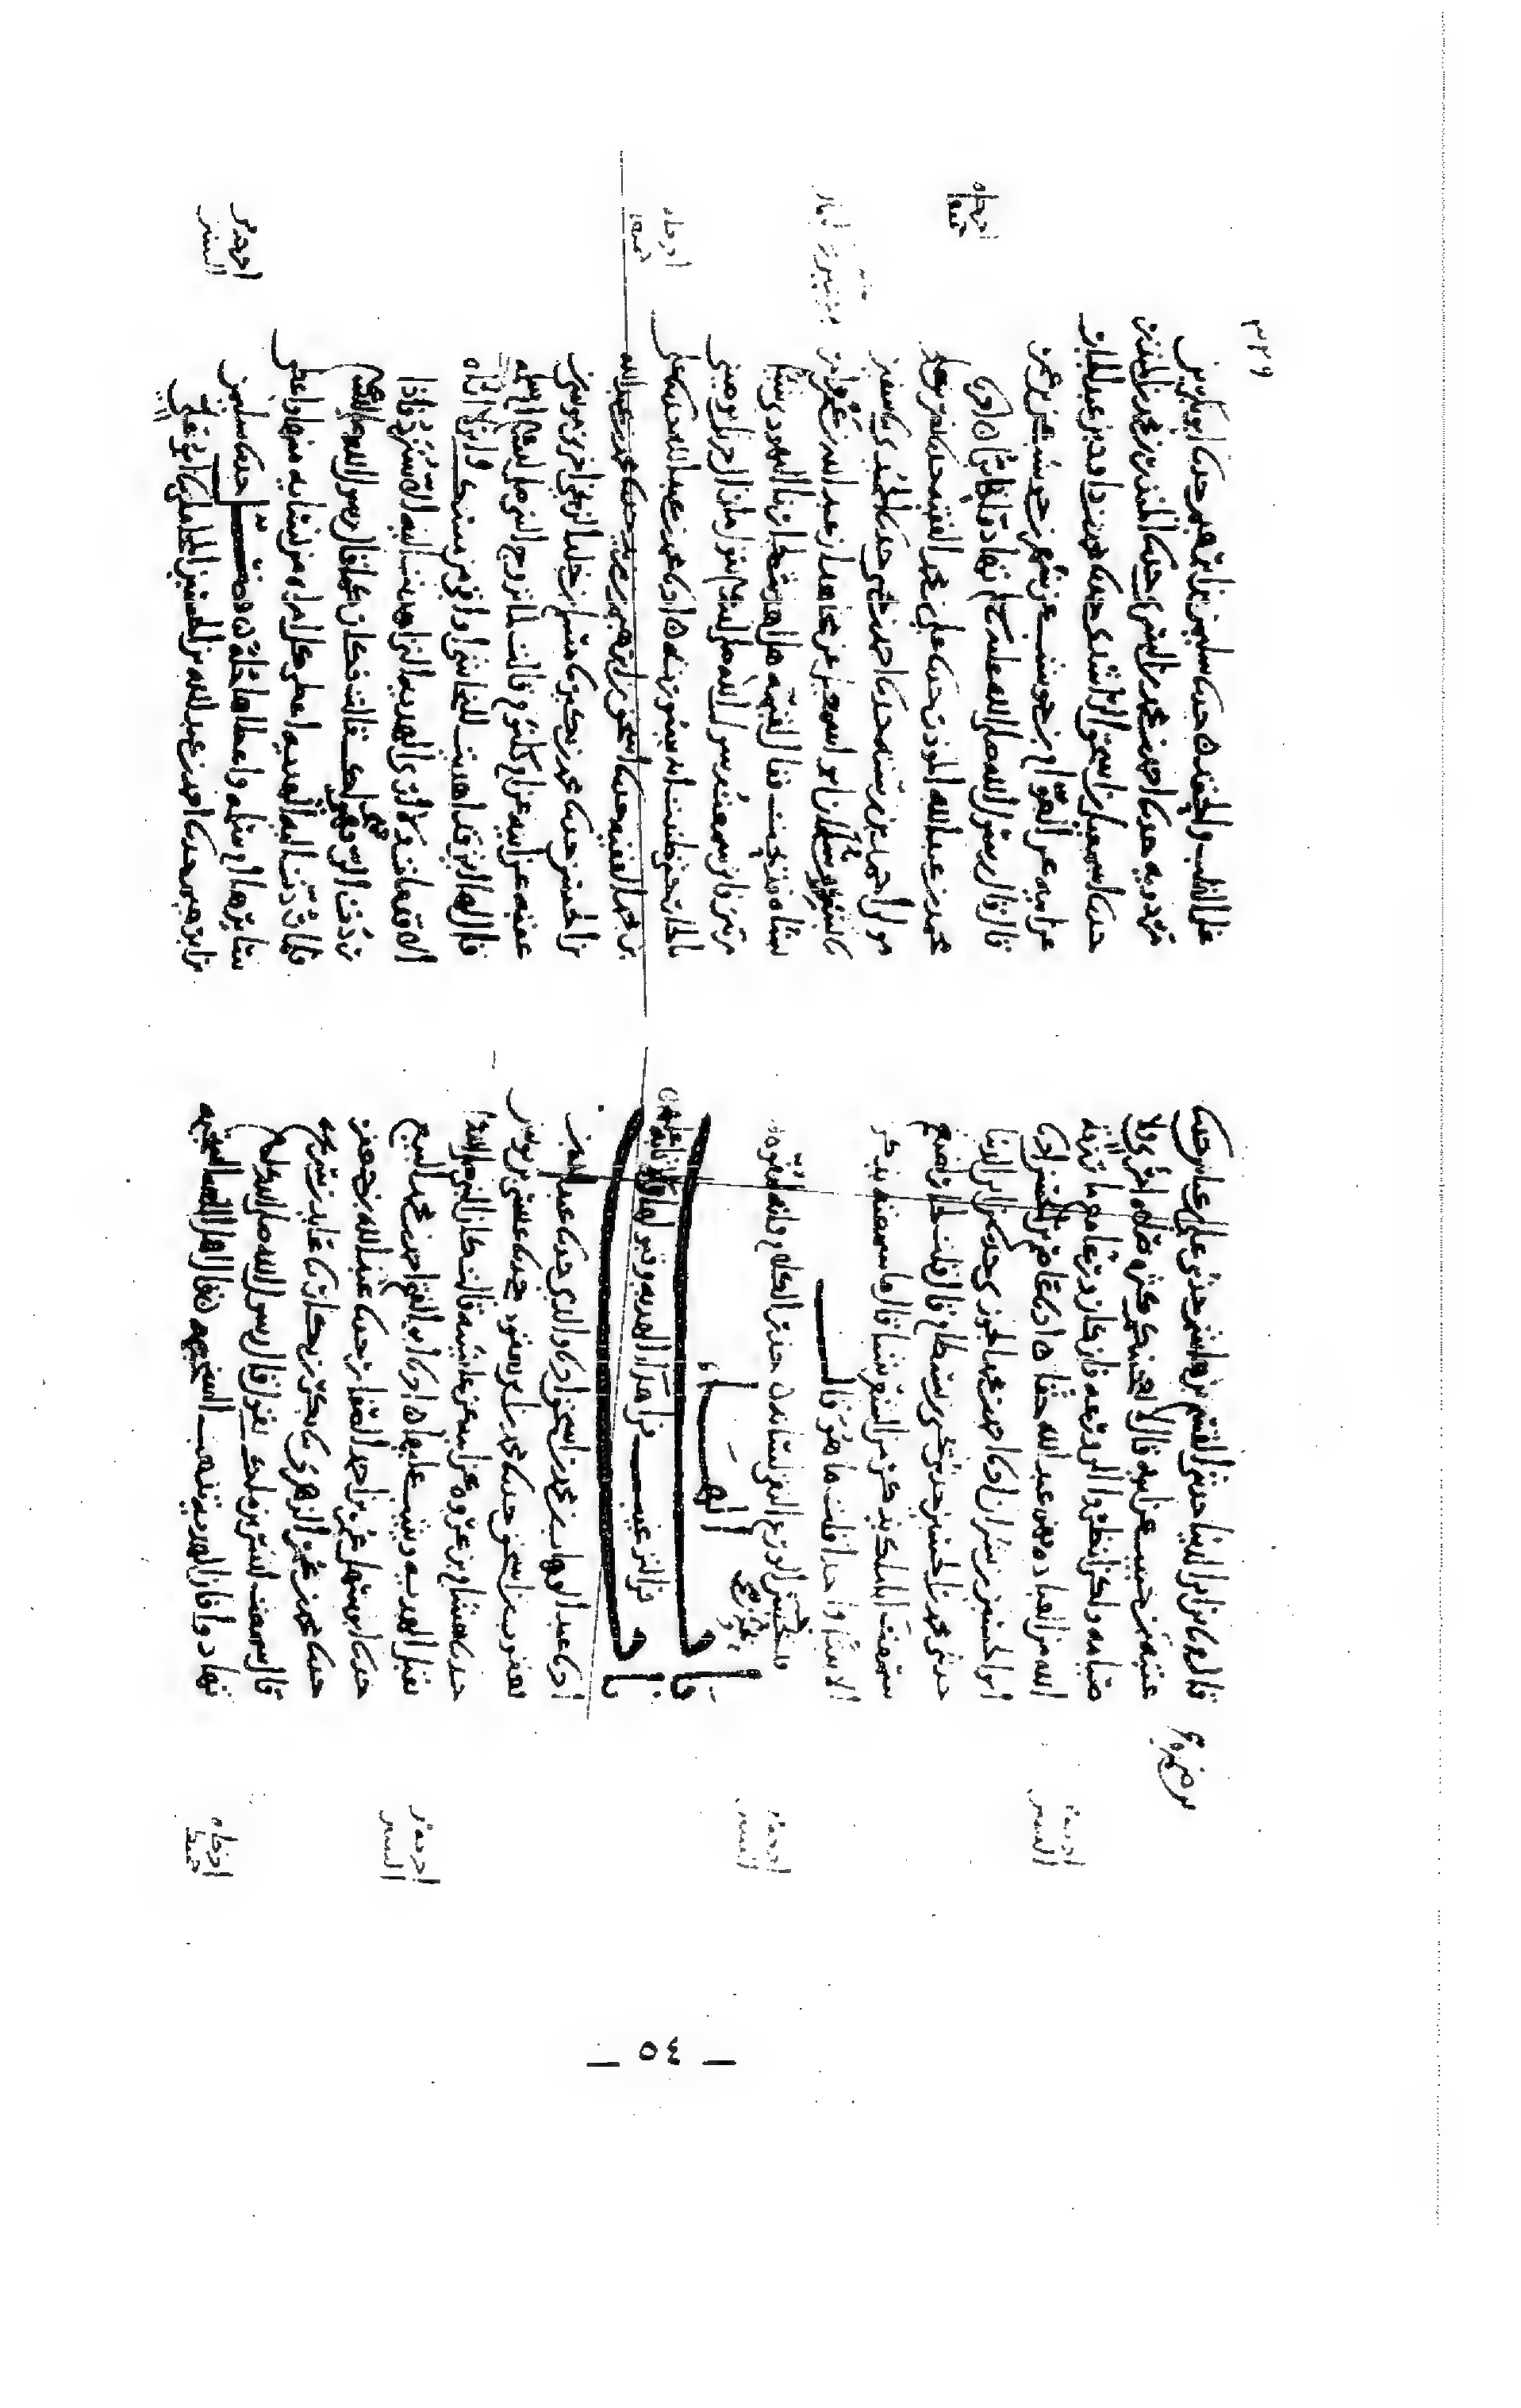 قال ابو بكر بن ابي الدنيا حدثني القسم بن هاشم حدثني علي بن عياش حدثنا
عتبة بن ضمرة بن حبيب عن ابيه قال لا يعجبكم كثرة صلاة امرئ ولا
صيامه ولكن انظروا الى ورعه فان كان ورعا مع ما رزقه
الله من العبادة فهو عبد الله حقا ه اخبرنا عاصم بن الحسن اخبرنا
ابو الحسين بن بشران اخبرنا احمد بن محمد الجوزي حدثنا ابن ابي الدنيا
حدثني محمد بن الحسين حدثني يحيى بن بسطام قال قلت لجار لضيغم
سمعت ابا مالك يذكر من الشعر شيئا قال ما سمعته يذكر
الا بيتا واحدا قلت ما هو قال
قد يخزن الورع التقي لسانه حذر الكلام وانه لمفوه
باب الهاء
باب في الترغيب في اهداء الهدية وقبولها والاثابة عليها
اخبرنا عبد الوهاب بن محمد بن اسحق اخبرنا والدي حدثنا
يعقوب بن اسحق حدثنا محمد بن حدثنا عيسى بن يونس
حدثنا هشام بن عروة عن ابيه عن عائشة قالت كان النبي صلى الله
يقبل الهدية ويثيب عليها ه اخبرنا ابو الفتح احمد بن محمد البيع
حدثنا ابو سهل عمر بن احمد الصفار حدثنا عبد الله بن جعفر
حدثنا محمد بن عمر الزهري حدثنا بكر بن بكار حدثنا عائذ بن شريح
قال سمعت انس بن ملك يقول قال رسول الله صلى الله عليه وسلم
تهادوا فان الهدية تذهب السخيمة قال اهل اللغة السخيمة
٣٢٩
غل القلب والحقد ه حدثنا سليمن بن ابرهيم حدثنا ابو بكر بن
مردويه حدثنا احمد بن محمد بن السري حدثنا المنذر بن محمد بن المنذر
حدثنا اسمعيل بن اسحق الراشدي حدثنا محمد بن داود بن عبد الجبار
عن ابيه عن العوام بن حوشب عن شهر بن حوشب عن ابن عمر
قال قال رسول الله صلى الله عليه وسلم تهادوا تحابوا ه اخبرنا
محمد بن عبد الله المؤذن حدثنا علي بن محمد الفقيه حدثنا
مولى احمد بن رسته حدثنا احمد بن مهدي حدثنا الحميدي حدثنا سفين
حدثنا بشير بن سلمان ابو اسمعيل عن مجاهد ان عبد الله بن عمرو امر
بشاة فذبحت فقال لقيمه هل اهديت لجارنا اليهودي شيئا
مرتين فاني سمعت رسول الله صلى الله عليه وسلم يقول ما زال جبريل يوصيني
بالجار حتى ظننت انه سيورثه ه اخبرنا محمد بن عبد الله حدثنا علي
بن محمد الفقيه حدثنا اسحق بن ابرهيم بن يزيد حدثنا محمد بن عبد الله
بن الحسن حدثنا محمد بن بكير حدثنا مسلم بن خالد الزنجي اخبرني موسى بن
عقبة عن ابيه عن ام كلثوم قالت لما تزوج النبي صلى الله عليه وسلم ام سلمة
قال لها اني قد اهديت للنجاشي اواقي من مسك واني لا اراه
الا قد مات ولا ارى الهدية التي اهديت اليه الا سترد فاذا
ردت الي فهي لك قالت فكان كما قال رسول الله صلى الله عليه وسلم
فلما ردت اليه الهدية اعطى كل امراة من نسائه منها واعطى
سائرها ام سلمة واعطاها الحلة حدثنا سليمن
بن ابرهيم حدثنا احمد بن عبد الله بن الحسين المحاملي
— ٥٤ —